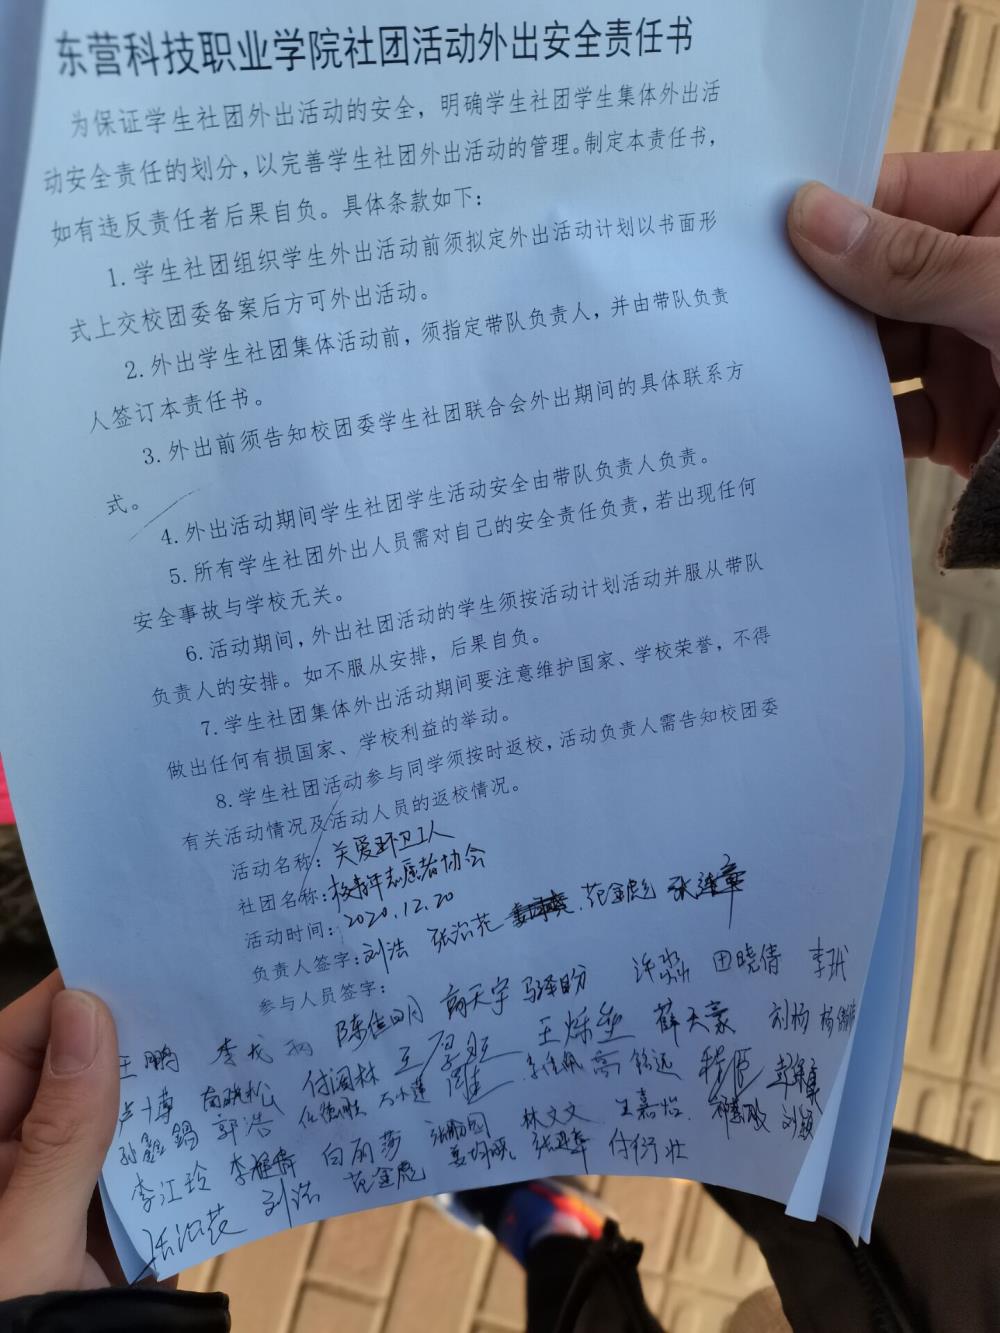 东营科技职业学院社团活动外出安全责任书
为保证学生社团外出活动的安全，明确学生社团学生集体外出活
动安全责任的划分，以完善学生社团外出活动的管理。制定本责任书，
如有违反责任者后果自负。具体条款如下：
1.学生社团组织学生外出活动前须拟定外出活动计划以书面形
式上交校团委备案后方可外出活动。
2.外出学生社团集体活动前，须指定带队负责人，并由带队负责
人签订本责任书。
3.外出前须告知校团委学生社团联合会外出期间的具体联系方
式。
4.外出活动期间学生社团学生活动安全由带队负责人负责。
5.所有学生社团外出人员需对自己的安全责任负责，若出现任何
安全事故与学校无关。
6.活动期间，外出社团活动的学生须按活动计划活动并服从带队
负责人的安排。如不服从安排，后果自负。
7.学生社团集体外出活动期间要注意维护国家、学校荣誉，不得
做出任何有损国家、学校利益的举动。
8.学生社团活动参与同学须按时返校，活动负责人需告知校团委
有关活动情况及活动人员的返校情况。
活动名称：关爱环卫工人
社团名称：校青年志愿者协会
活动时间：2020.12.20
负责人签字：刘浩 张治花 范金彪
参与人员签字：
王鹏 陈佳明 商天宇 许淼 田晓倩
卢博 付闰林 王烁 薛天豪 刘杨
孙鑫 郭浩 高铭远
李江玲 李雅倩 白丽莎 林文文 王嘉怡 刘颖
张治花 刘浩 范金彪 付衍壮